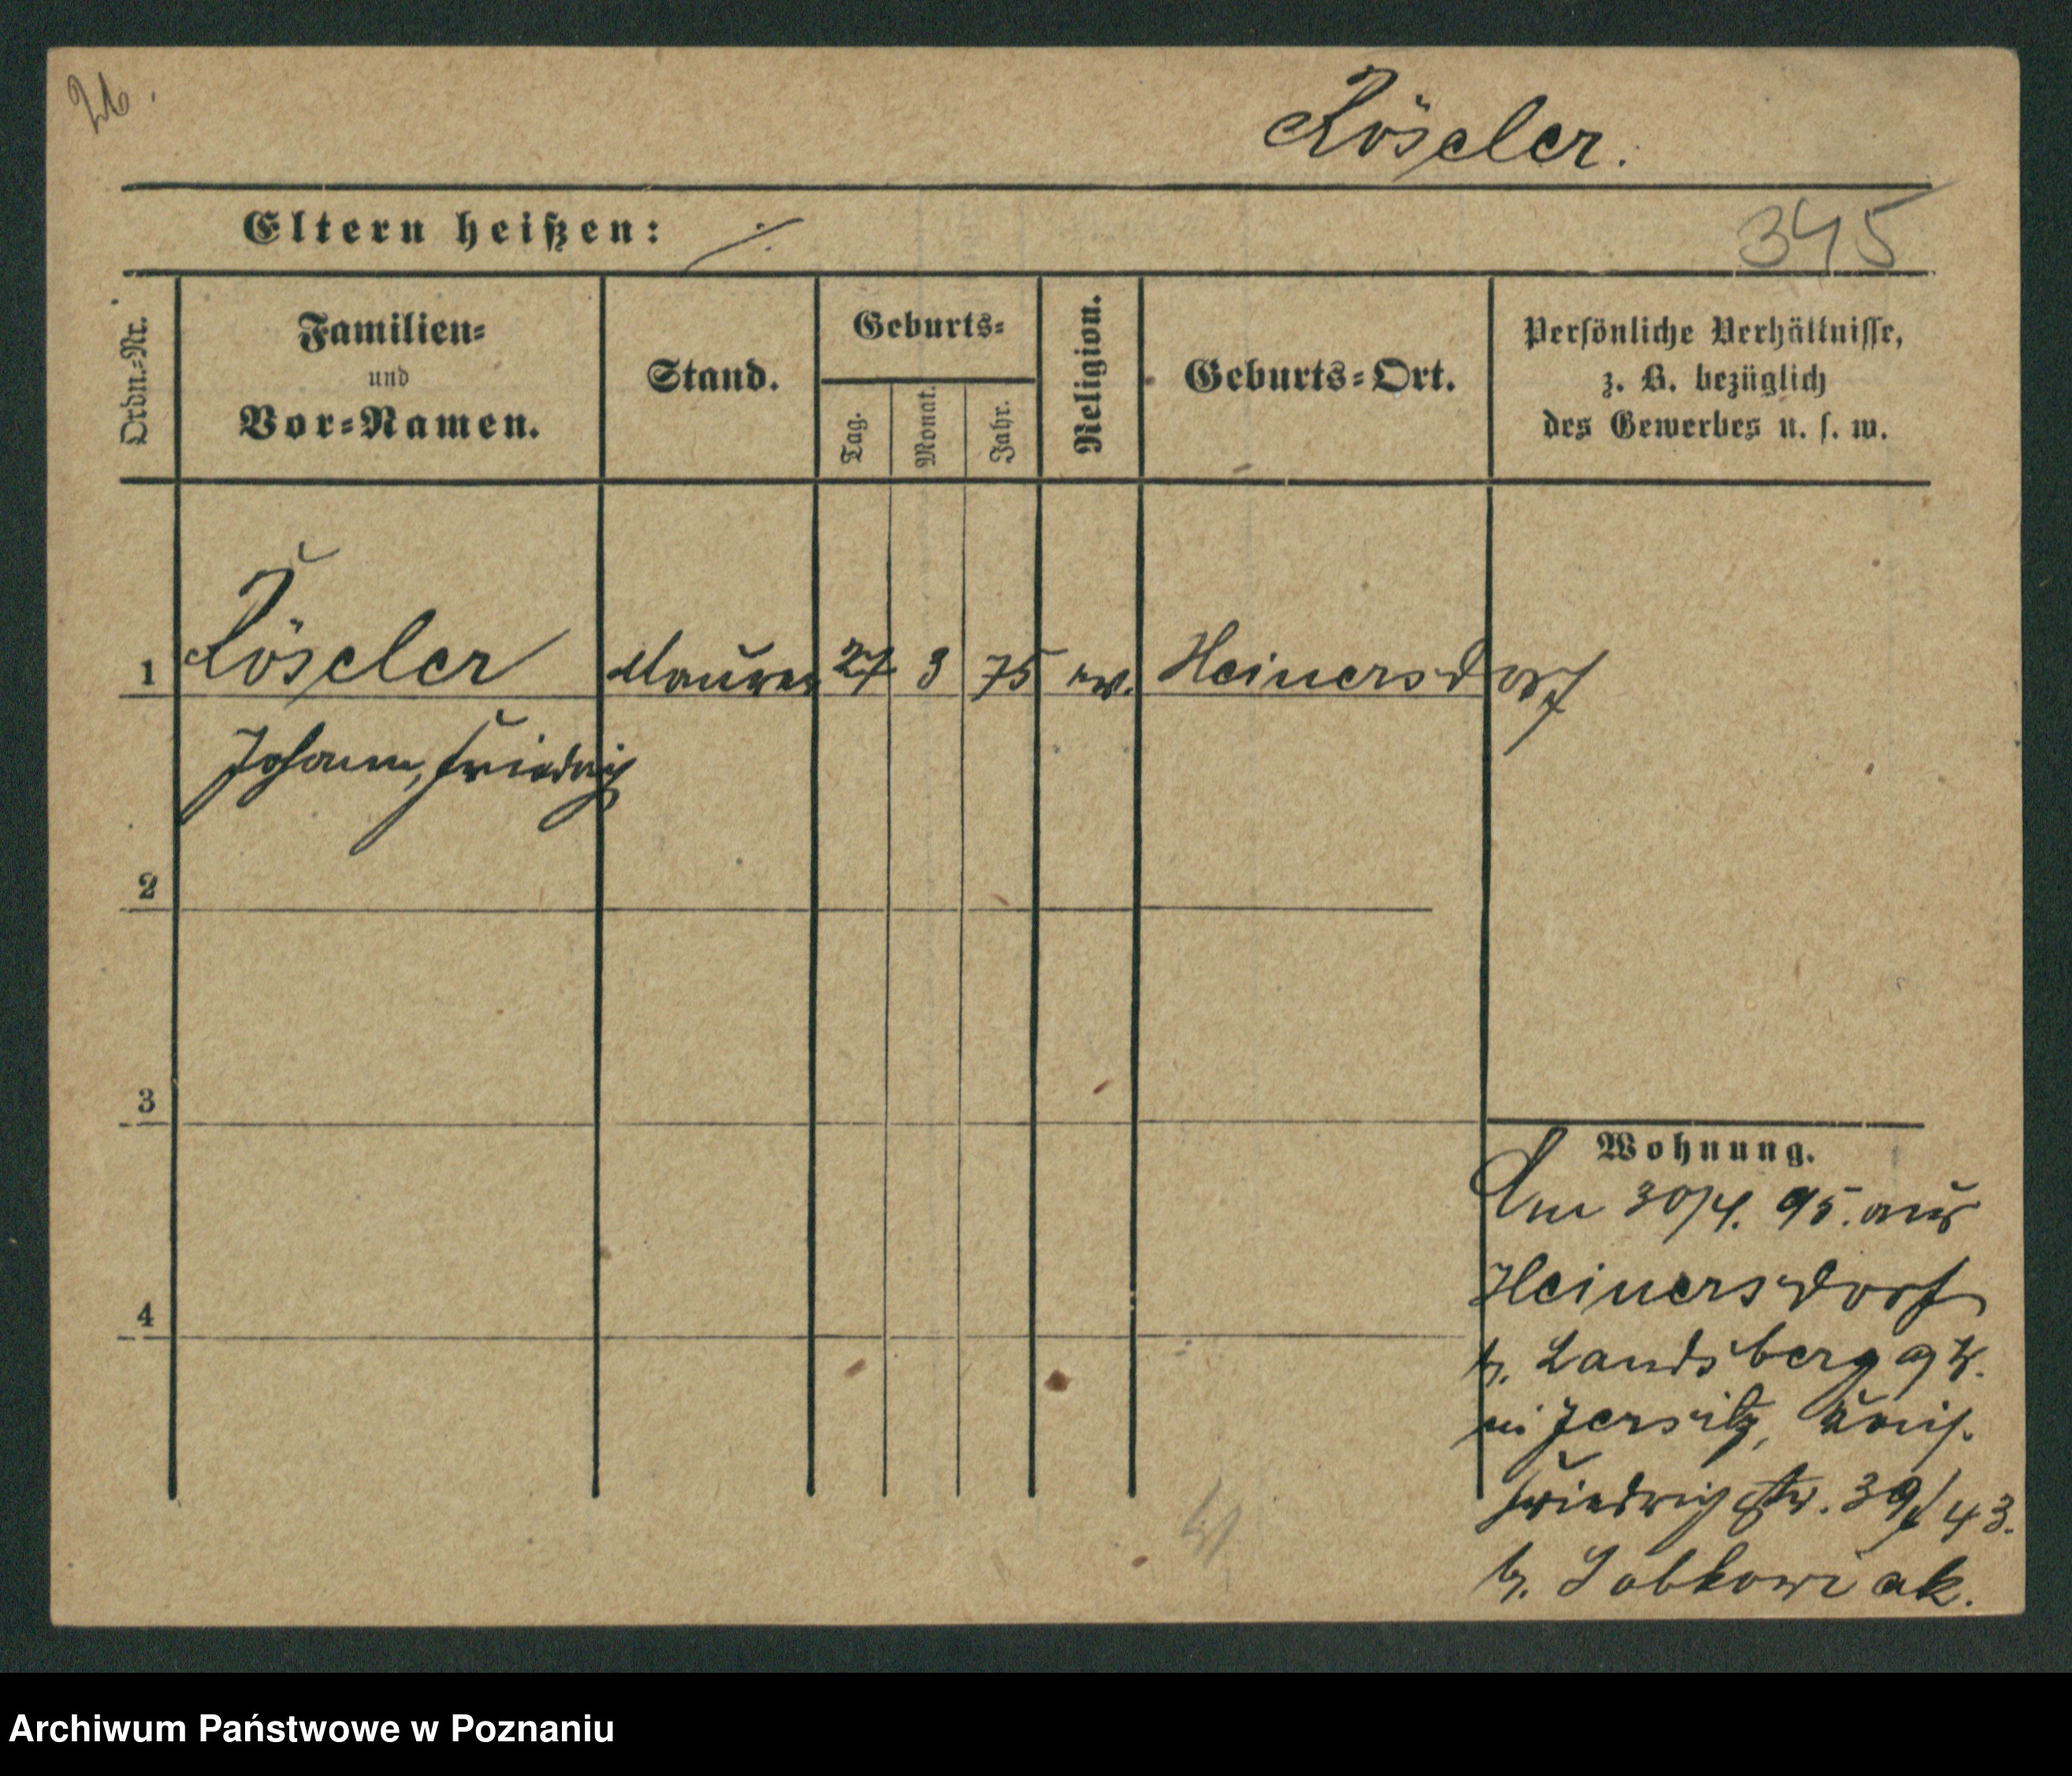 Röseler.
Eltern heißen: ·/.
345
Ordn.-Nr.
Familien- und Vor-Namen.
Stand.
Geburts-
Tag.
Monat.
Jahr.
Religion.
Geburts-Ort.
Persönliche Verhältnisse,
z. B. bezüglich
des Gewerbes u. s. w.
1 Röseler Maurer 27 3 75 ev. Heinersdorf
Johann, Friedrich
2
3
4
Wohnung.
Am 30/4. 95. aus
Heinersdorf
b. Landsberg a/W.
in Jersitz,
Friedrichstr. 39/43.
b.
Archiwum Państwowe w Poznaniu